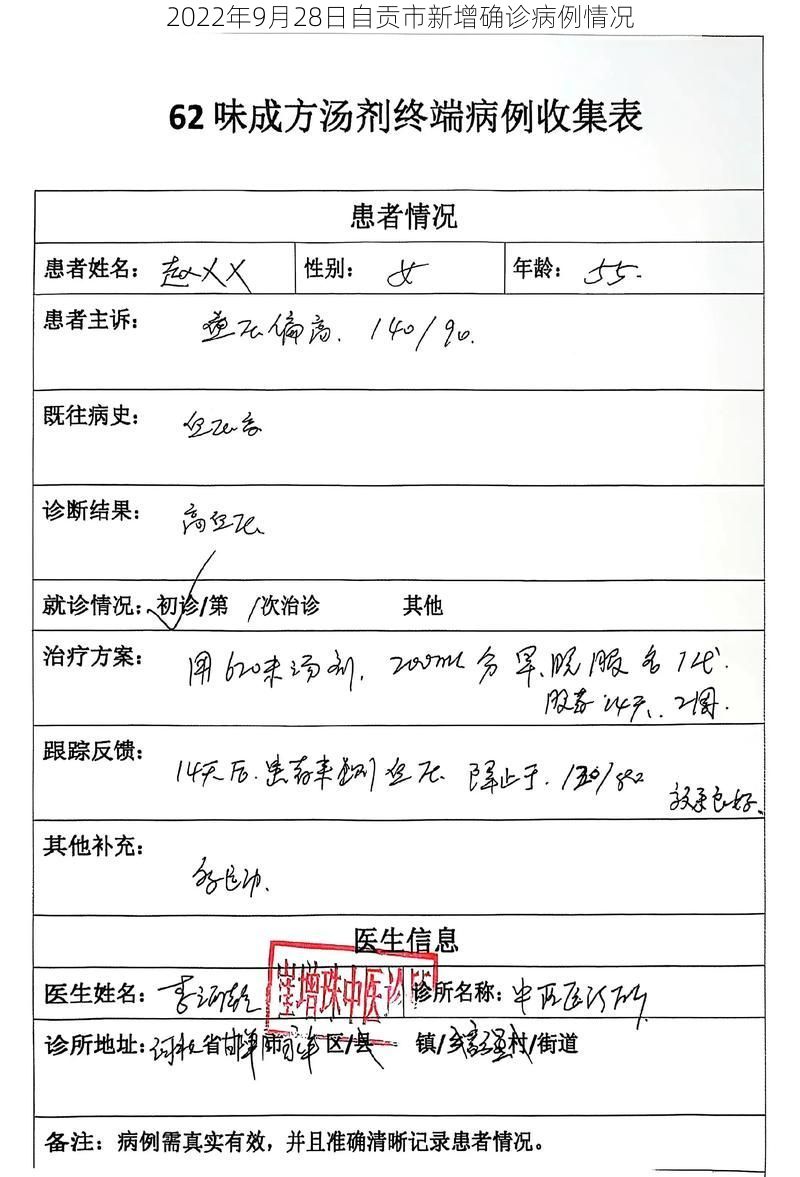 2022年9月28日自贡市新增确诊病例情况
62味成方汤剂终端病例收集表
患者情况
患者姓名： 赵XX 性别： 女 年龄： 55.
患者主诉： 血压偏高. 140/90.
既往病史： 血压高
诊断结果： 高血压
就诊情况： 初诊/第 /次治诊 其他
治疗方案： 用620味汤剂, 200ml 分早、晚服各1代.
服药14天、2周.
跟踪反馈： 14天后.患者来测血压 降止于.
效果良好、
其他补充：
医生信息
崔增珠中医诊所
医生姓名： 李 诊所名称： 中医诊所
诊所地址： 河北省邯郸市 区/县 镇/乡 村/街道
备注：病例需真实有效，并且准确清晰记录患者情况。